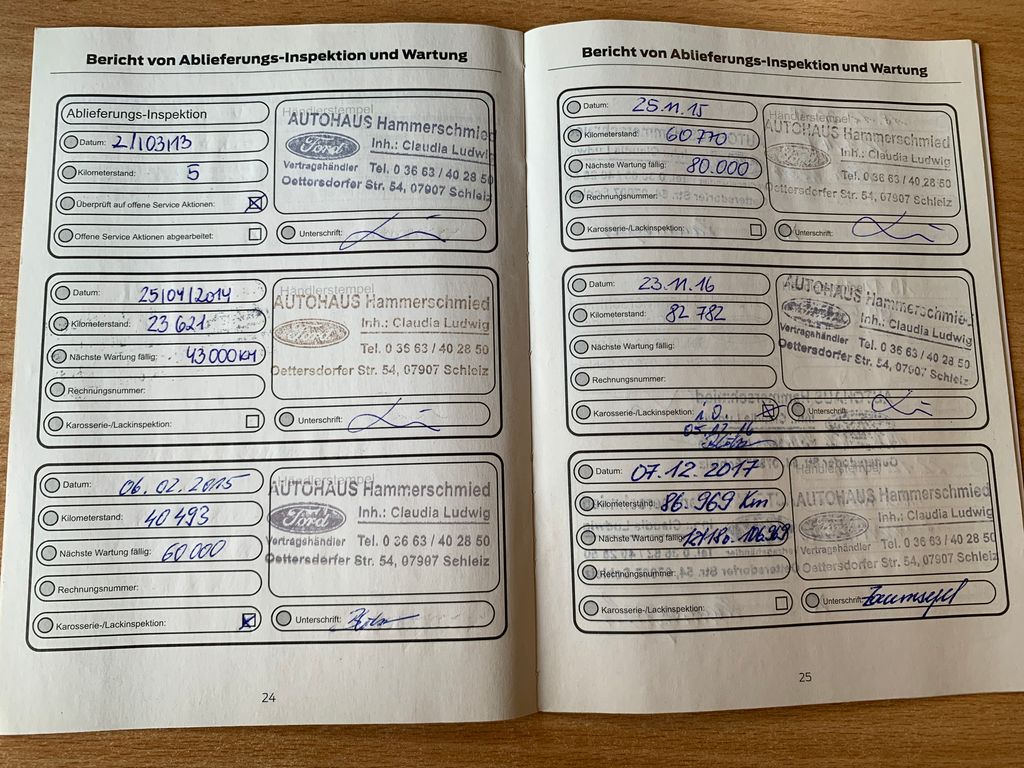 Bericht von Ablieferungs-Inspektion und Wartung
Ablieferungs-Inspektion
Datum: 21/03/13
Kilometerstand: 5
Überprüft auf offene Service Aktionen:
Offene Service Aktionen abgearbeitet:
Händlerstempel
AUTOHAUS Hammerschmied
Ford Inh.: Claudia Ludwig
Vertragshändler Tel. 0 36 63 / 40 28 50
Oettersdorfer Str. 54, 07907 Schleiz
Unterschrift:
Datum: 25/04/2014
Kilometerstand: 23 621
Nächste Wartung fällig: 43000 KM
Rechnungsnummer:
Karosserie-/Lackinspektion:
Händlerstempel
AUTOHAUS Hammerschmied
Ford Inh.: Claudia Ludwig
Tel. 0 36 63 / 40 28 50
Oettersdorfer Str. 54, 07907 Schleiz
Unterschrift:
Datum: 06.02.2015
Kilometerstand: 40 493
Nächste Wartung fällig: 60.000
Rechnungsnummer:
Karosserie-/Lackinspektion:
Händlerstempel
AUTOHAUS Hammerschmied
Ford Inh.: Claudia Ludwig
Vertragshändler Tel. 0 36 63 / 40 28 50
Oettersdorfer Str. 54, 07907 Schleiz
Unterschrift:
24
Bericht von Ablieferungs-Inspektion und Wartung
Datum: 25.11.15
Kilometerstand: 60 770
Nächste Wartung fällig: 80.000
Rechnungsnummer:
Karosserie-/Lackinspektion:
Händlerstempel
AUTOHAUS Hammerschmied
Ford Inh.: Claudia Ludwig
Tel. 0 36 63 / 40 28 50
Oettersdorfer Str. 54, 07907 Schleiz
Unterschrift:
Datum: 23.11.16
Kilometerstand: 82 782
Nächste Wartung fällig:
Rechnungsnummer:
Karosserie-/Lackinspektion: i.O.
05.12.16
Händlerstempel
AUTOHAUS Hammerschmied
Ford Inh.: Claudia Ludwig
Vertragshändler Tel. 0 36 63 / 40 28 50
Oettersdorfer Str. 54, 07907 Schleiz
Unterschrift:
Datum: 07.12.2017
Kilometerstand: 86.969 Km
Nächste Wartung fällig: 12/18 o. 106.969
Rechnungsnummer:
Karosserie-/Lackinspektion:
Händlerstempel
AUTOHAUS Hammerschmied
Ford Inh.: Claudia Ludwig
Vertragshändler Tel. 0 36 63 / 40 28 50
Oettersdorfer Str. 54, 07907 Schleiz
Unterschrift:
25